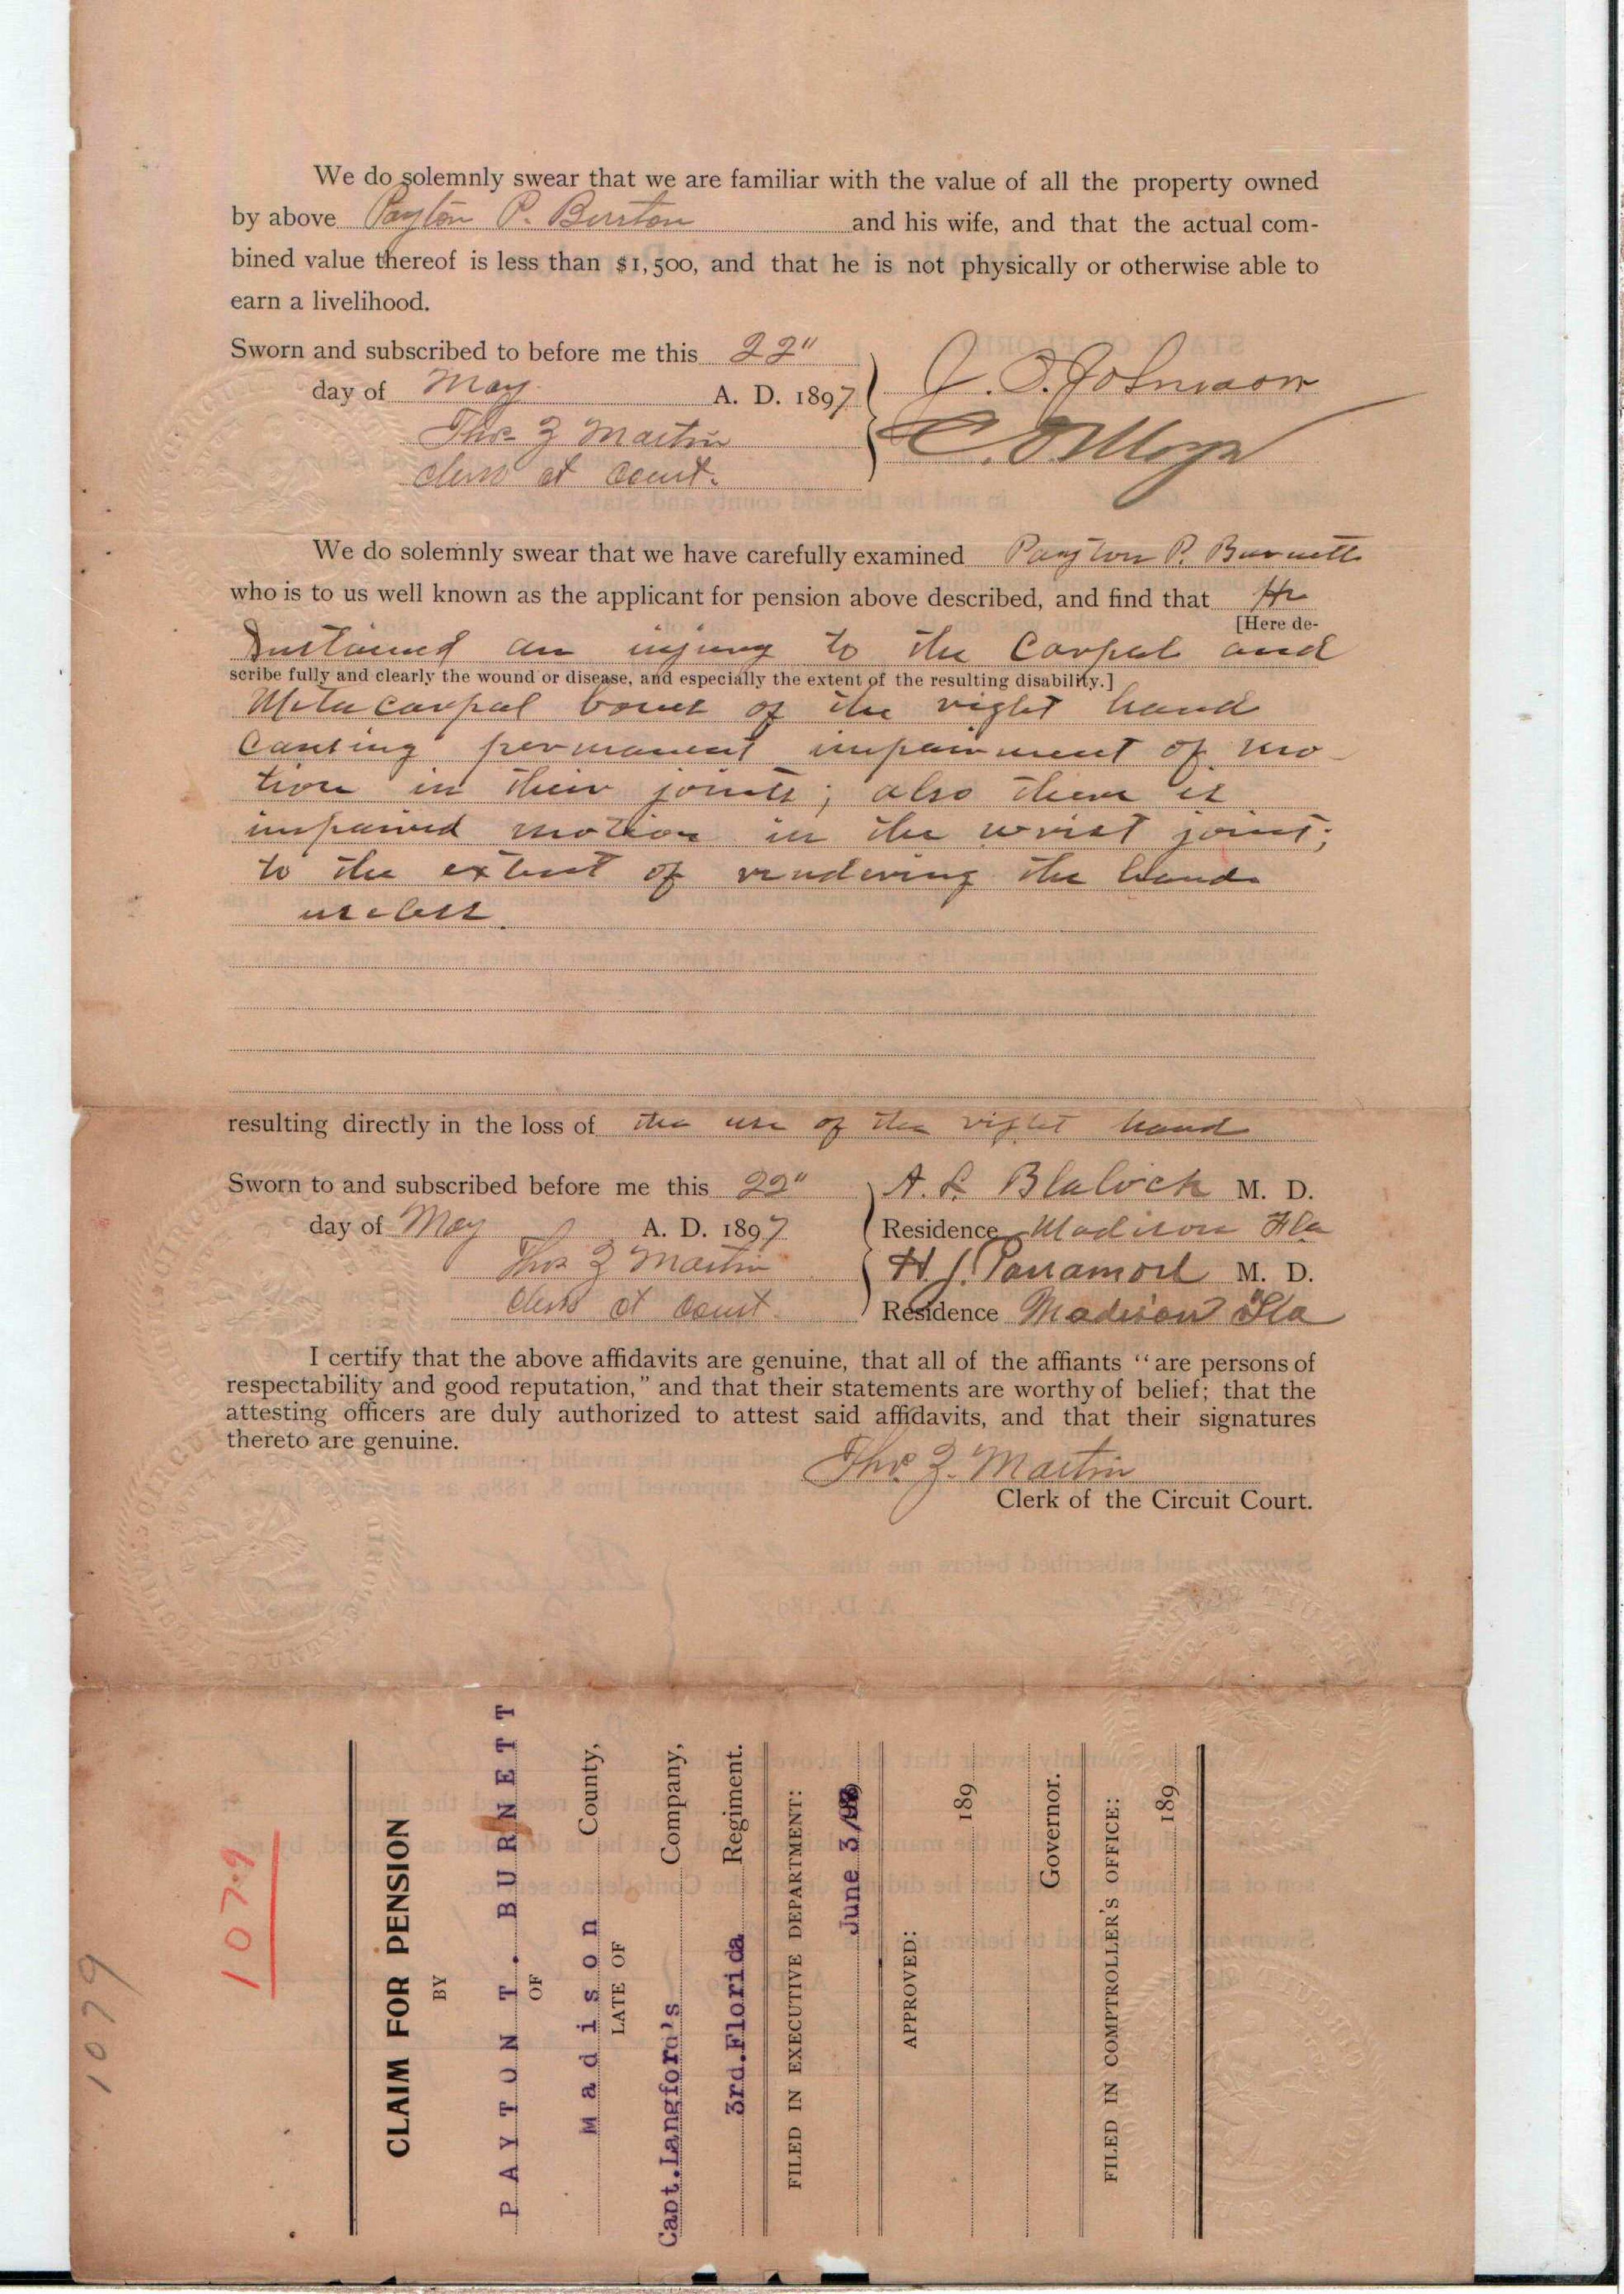 We do solemnly swear that we are familiar with the value of all the property owned
by above Payton P. Burton and his wife, and that the actual com-
bined value thereof is less than $1,500, and that he is not physically or otherwise able to
earn a livelihood.
Sworn and subscribed to before me this 22"
day of May A. D. 1897
J. O. Johnson
Thos Z Martin
Clerk ct Court.
We do solemnly swear that we have carefully examined Payton P. Burnett
who is to us well known as the applicant for pension above described, and find that He
[Here de-
Sustained an injury to the Carpal and
scribe fully and clearly the wound or disease, and especially the extent of the resulting disability.]
Meta Carpal bones of the right hand
Causing permanent impairment of mo-
tion in their joints; also there is
impaired motion in the wrist joint;
to the extent of rendering the hand
useless
resulting directly in the loss of the use of the right hand
Sworn to and subscribed before me this 22"
A. L. Blalock M. D.
day of May A. D. 1897
Residence Madison Fla
Thos Z Martin
H J. Parramore M. D.
Clerk ct Court.
Residence Madison Fla
I certify that the above affidavits are genuine, that all of the affiants "are persons of
respectability and good reputation," and that their statements are worthy of belief; that the
attesting officers are duly authorized to attest said affidavits, and that their signatures
thereto are genuine.
Thos Z. Martin
Clerk of the Circuit Court.
1079
1079
CLAIM FOR PENSION
BY
PAYTON T. BURNETT
OF
Madison County,
LATE OF
Capt. Langford's Company,
3rd. Florida Regiment.
FILED IN EXECUTIVE DEPARTMENT:
June 3/
APPROVED:
189
Governor.
FILED IN COMPTROLLER'S OFFICE:
189